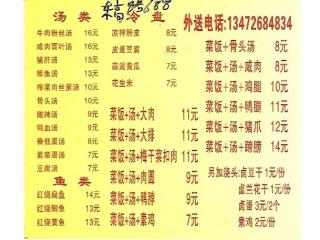 汤 类
牛肉粉丝汤 16元
咸肉百叶汤 16元
猪肝汤 13元
鲫鱼汤 13元
榨菜肉丝蛋汤 10元
骨头汤 10元
酸辣汤 9元
鸭血汤 9元
番茄蛋汤 8元
紫菜蛋汤 7元
豆腐汤 7元
鱼 类
红烧扁鱼 14元
红烧鲫鱼 13元
红烧黄鱼 13元
冷盘
凉拌粉皮 8元
皮蛋豆腐 8元
蒜泥黄瓜 7元
花生米 7元
菜饭+汤+大肉 11元
菜饭+汤+大排 11元
菜饭+汤+梅干菜扣肉 11元
菜饭+汤+肉圆 9元
菜饭+汤+鸭脖 9元
菜饭+汤+素鸡 7元
外送电话:13472684834
菜饭+骨头汤 8元
菜饭+汤+咸肉 8元
菜饭+汤+鸡腿 10元
菜饭+汤+鸭腿 11元
菜饭+汤+猪爪 12元
菜饭+汤+蹄膀 14元
另加浇头:卤豆干 1元/份
卤兰花干 1元/份
卤蛋 3元/2个
素鸡 2元/份